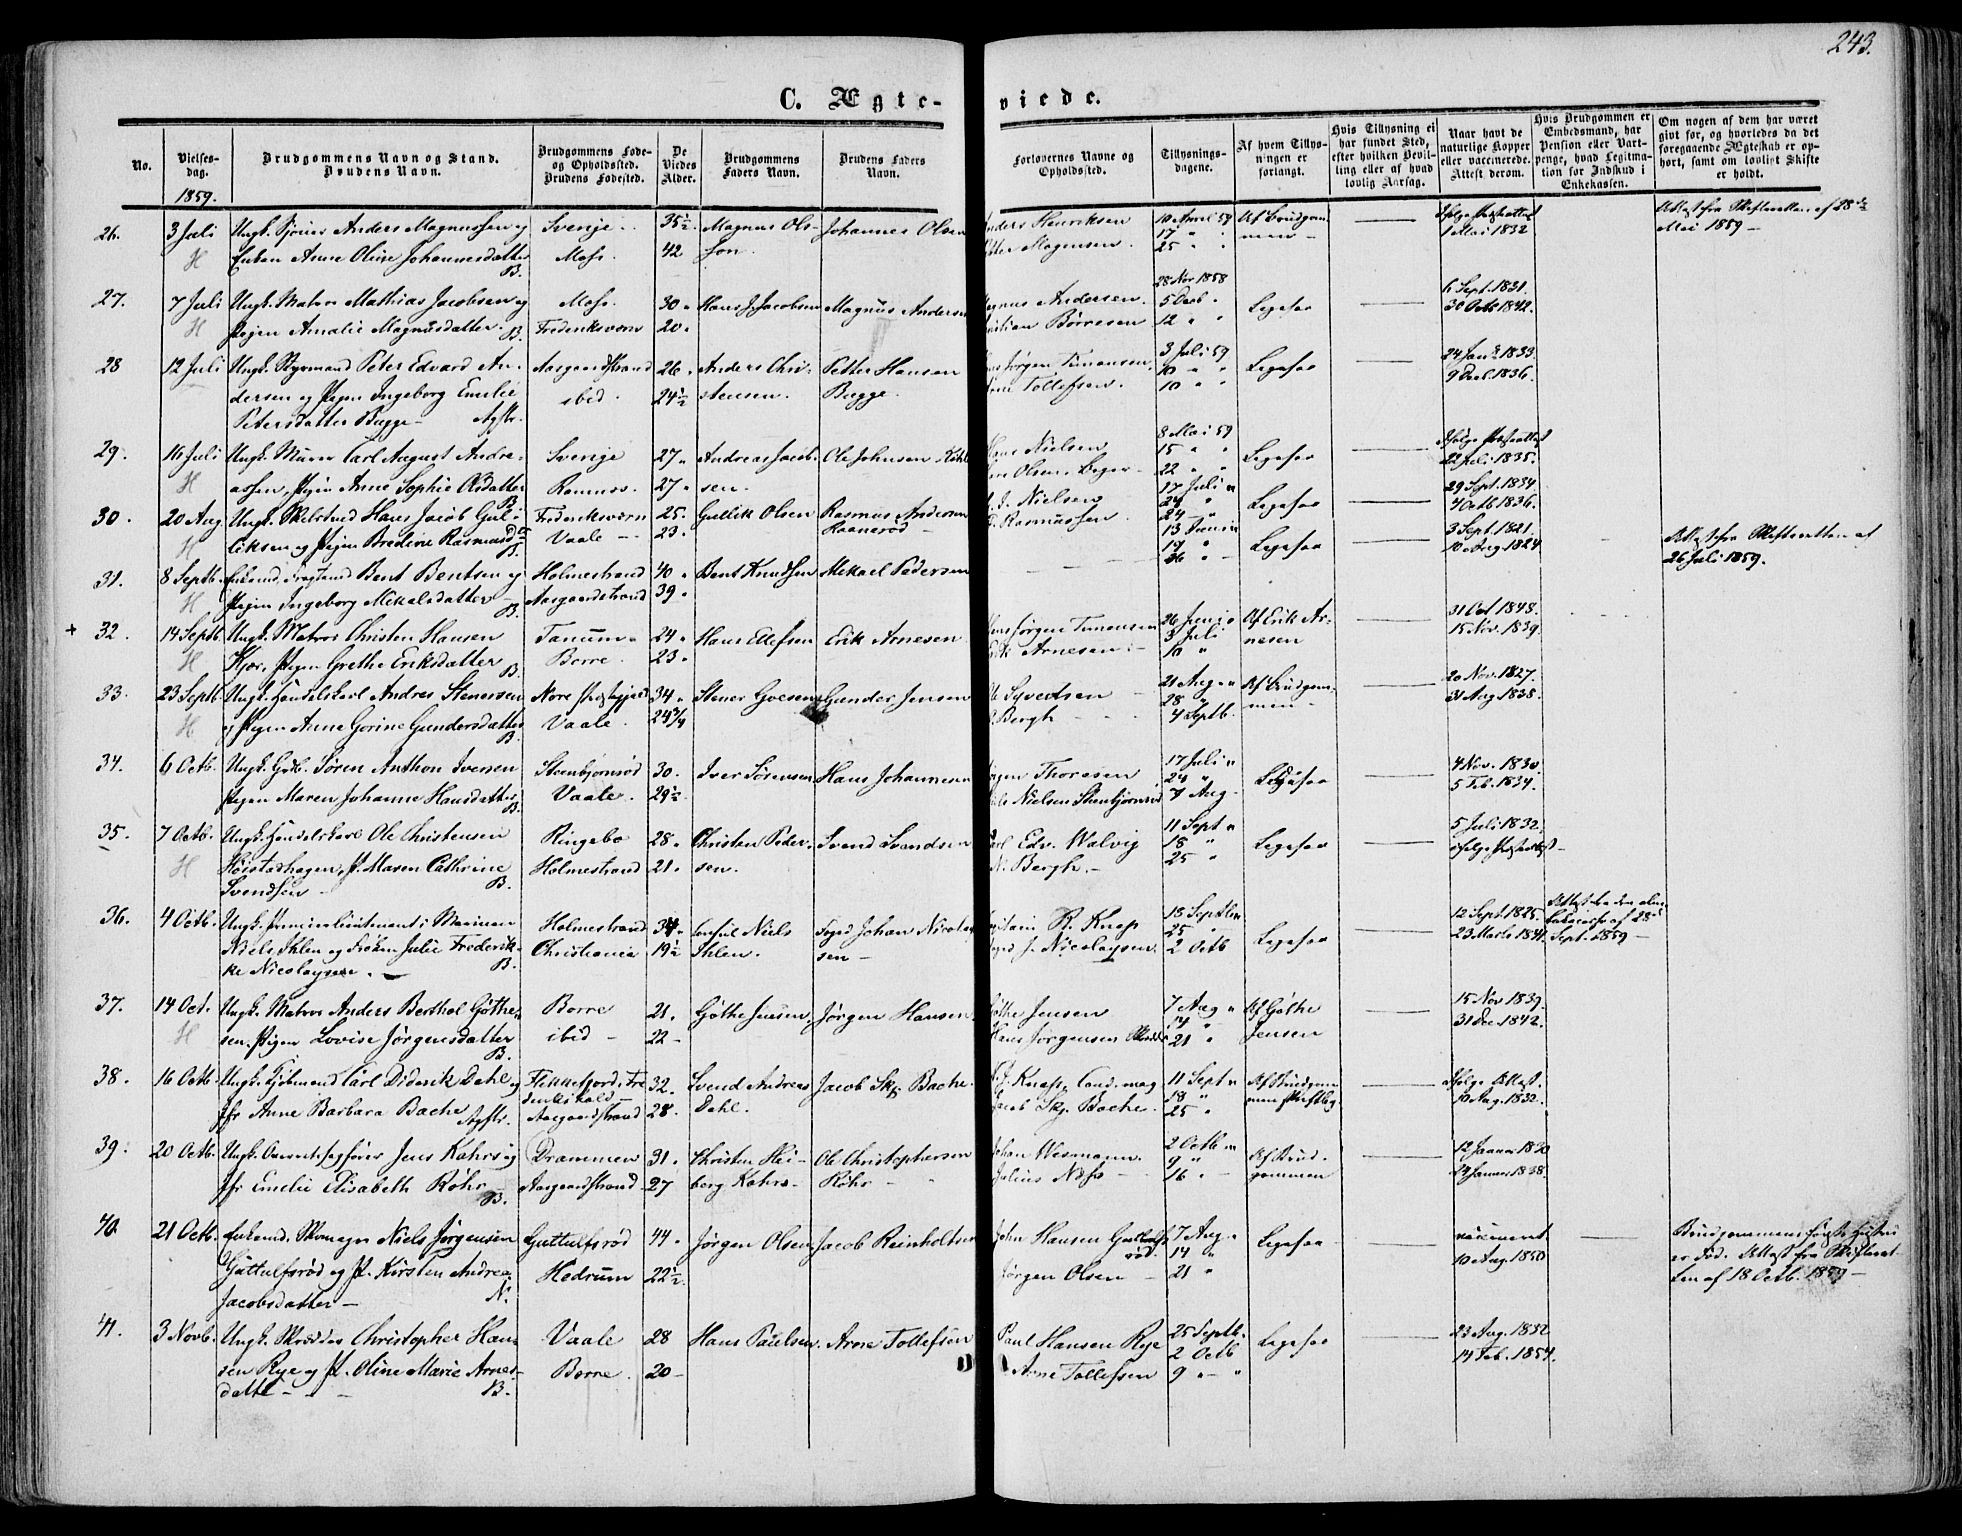 243.
C. Ægteviede.
No.
Vielsesdag.
Brudgommens Navn og Stand.
Brudens Navn.
Brudgommens Føde-
og Opholdssted.
Brudens Fødested.
De
Viedes
Alder.
Brudgommens
Faders Navn.
Brudens Faders
Navn.
Forlovernes Navne og
Opholdssted.
Tillysnings-
dagene.
Af hvem Tillys-
ningen er
forlangt.
Hvis Tillysning ei
har fundet Sted,
efter hvilken Bevil-
ling eller af hvad
lovlig Aarsag.
Naar havt de
naturlige Kopper
eller vaccinerede.
Attest derom.
Hvis Brudgommen er
Embedsmand, har
Pension eller Vart-
penge, hvad Legitima-
tion for Indskud i
Enkekassen.
Om nogen af dem har været
givt før, og hvorledes da det
foregaaende Ægteskab er op-
hørt, samt om lovligt Skifte
er holdt.
1859.
26. 3 Juli Ungk. Anders Magnussen og Sverige 35½ Magnus Ols- Johannes Olsen Anders Henriksen 10 April 59 Af Brudgom-
Enken Anne Oline Johannesdatter Moss. 42 son. Magensen. 17 " " men 1 Mai 1832 Mai 1859 —
B. 25 " "
27. 7 Juli Ungk. Matros Mathias Jacobsen og Moss. 30 Hans J. Jacobsen Magnus Andersen Magnus Andersen 28 Nov 1858 Ligesaa 6 Sept. 1831.
Pigen Amalie Magnusdatter. B. Frederiksværn 20 Christian Børresen 5 Decb " 30 Octb 1842.
12 " "
28 12 Juli Ungk. Styrmand Peter Edvard An- Aasgaardstrand 26 Anders Chri- Petter Hansen Hans Jørgen Simensen 3 Juli 59 Ligesaa 24 Jan. 1833
dersen og Pigen Ingeborg Emilie ibid. 24½ stensen. Bugge. Tollefsen. 10 " " 9 Decb. 1836.
Petersdatter Bugge - Agstr. 10 " "
29. 16 Juli Ungk. Murer Carl August Andre- Sverige 27 Andreas Jacob- Ole Johnsen Hans Nielsen 8 Mai 59 Ligesaa
assen, Pigen Anne Sophie Olsdatter Ramnes. 27 sen. Olsen 15 " " 22 Juli 1835.
B. 22 " "
30. 20 Aug. Ungk. Hans Jacob Gul- Frederiksværn 25. Gullik Olsen Rasmus Andersen Nielsen 17 Juli " Ligesaa 29 Sept. 1834
liksen og Pigen Bredine Rasmusd. Vaale 23 Raanerød Rasmussen 24 " 4 Octb 1836.
B. 24 "
31. 8 Septb. Enkemd. Bent Bentsen og Holmestrand 40 Bent Knudsen Mikael Pedersen 13 Juni Ligesaa 3 Sept. 1821. Attest fra Skifteretten af
Pigen Ingeborg Mikalsdatter B. Aasgaardstrand 39 19 " 10 Aug. 1824 26 Juli 1859.
26 "
+ 32 14 Septb. Ungk. Matros Christen Hansen Tanum 24 Hans Ellefsen Erik Arnesen Hans Jørgen Simensen 26 Juni Af Erik Ar- 31 Oct 1848.
Kjær, Pigen Grethe Eriksdatter B. Borre. 23 Erik Arnesen 3 Juli nesen 15 Nov. 1839
10 "
33. 23 Septb. Ungk. Handelskarl Andres Stenersen Nore Præstegjæld 34 Stener Goesen Gunder Jensen Syvertsen 21 Aug " Af Brudgom- 20 Nov. 1827.
og Pigen Anne Gorine Gundersdatter Vaale. 24¾ Bergh 28 " men - 31 Aug 1838.
B. 4 Septb.
34. 6 Octb. Ungk. Søren Anthon Iversen Steenbjørnsrød 30. Iver Sørensen Hans Johannesen Jørgen Thoresen 17 Juli " Ligesaa 4 Nov. 1830
Pigen Maren Johanne Hansdatter Vaale. 29½ Nielsen Stenbjørnsrød 24 " 5 Feb. 1834.
B. 7 Aug
35. 7 Octb. Ungk. Handelskarl Ole Christensen Ringebo 28 Christen Peder- Svend Svendsen Carl Edv. Walvig 11 Sept " Ligesaa 5 Juli 1832
Høistadhagen, P. Maren Cathrine Holmestrand 21 sen. N. Bergh. 18 "
Svendsen B. 25 "
36. 4 Octb. Ungk. Premierlieutenant i Marinen Holmestrand 34 Consul Niels Johan Nicolay- Capitain R. Knap 18 Septb Ligesaa 12 Sept. 1825.
Niels Ihlen og Frøken Julie Frederik- Christiania 19½ Ihlen. sen — J. Nicolaysen. 25 " 23 Marts 1841. Sept. 1859 -
ke Nicolaysen. B. 2 Octb
37. 14 Oct. Ungk. Matros Anders Berthol Gøthe- Borre 21. Gøthe Jensen. Jørgen Hansen Gøthe Jensen 7 Aug " Af Gøthe 15 Nov 1839.
sen. Pigen Lovise Jørgensdatter ibid 22 Hans Jørgensen 14 " Jensen 31 Dec 1842.
B. 21 "
38. 16 Octb Ungk. Kjøbmand Carl Diderik Dahl og Flekkefjord, Fre- 32. Svend Andreas Jacob Skj. Bache. Knap, Cand. mag 11 Sept " Af Brudgom- Ifølge Attest.
Jfr Anne Barbara Bache Agstr. derikshald — Dahl. Jacob Skj. Bache. 18 " men skriftlig. 10 Aug. 1832.
Aasgaardstrand 28. 25 "
39. 20 Octb. Ungk. Overretssagfører Jens Kahrs og Drammen 31 Christen Hei- Ole Christophersen Johan Wismann. 2 Octb " Af Brud- 12 Januar 1830
Jfr Emelie Elisabeth Røhr B. Aasgaardstrand 27 berg Kahrs - Røhr Julius Næss 9 " gommen 29 Januar 1838.
16 "
40 21 Octb. Enkemd. Skomager Niels Jørgensen Guttulfsrød 44 Jørgen Olsen Jacob Reinholtsen John Hansen Guttulfs- 7 Aug. Ligesaa vaccineret Brudgommens første Hustru
Guttulfsrød og P. Kirsten Andrea Hedrum 22½ rød. 14 " 10 Aug. 1850 er død. Attest fra Skifteret-
Jacobsdatter — N. Jørgen Olsen 21 " ten af 18 Octb. 1859 —
41. 3 Novb. Ungk. Skrædder Christopher Han- Vaale 28 Hans Paulsen. Arne Tollefsen Paul Hansen Rye 25 Septb. Ligesaa 23 Aug. 1832
sen Rye og P. Oline Marie Arnes- Borre 20 Arne Tollefsen 2 Octb 14 Feb. 1854.
datter B. 9 "